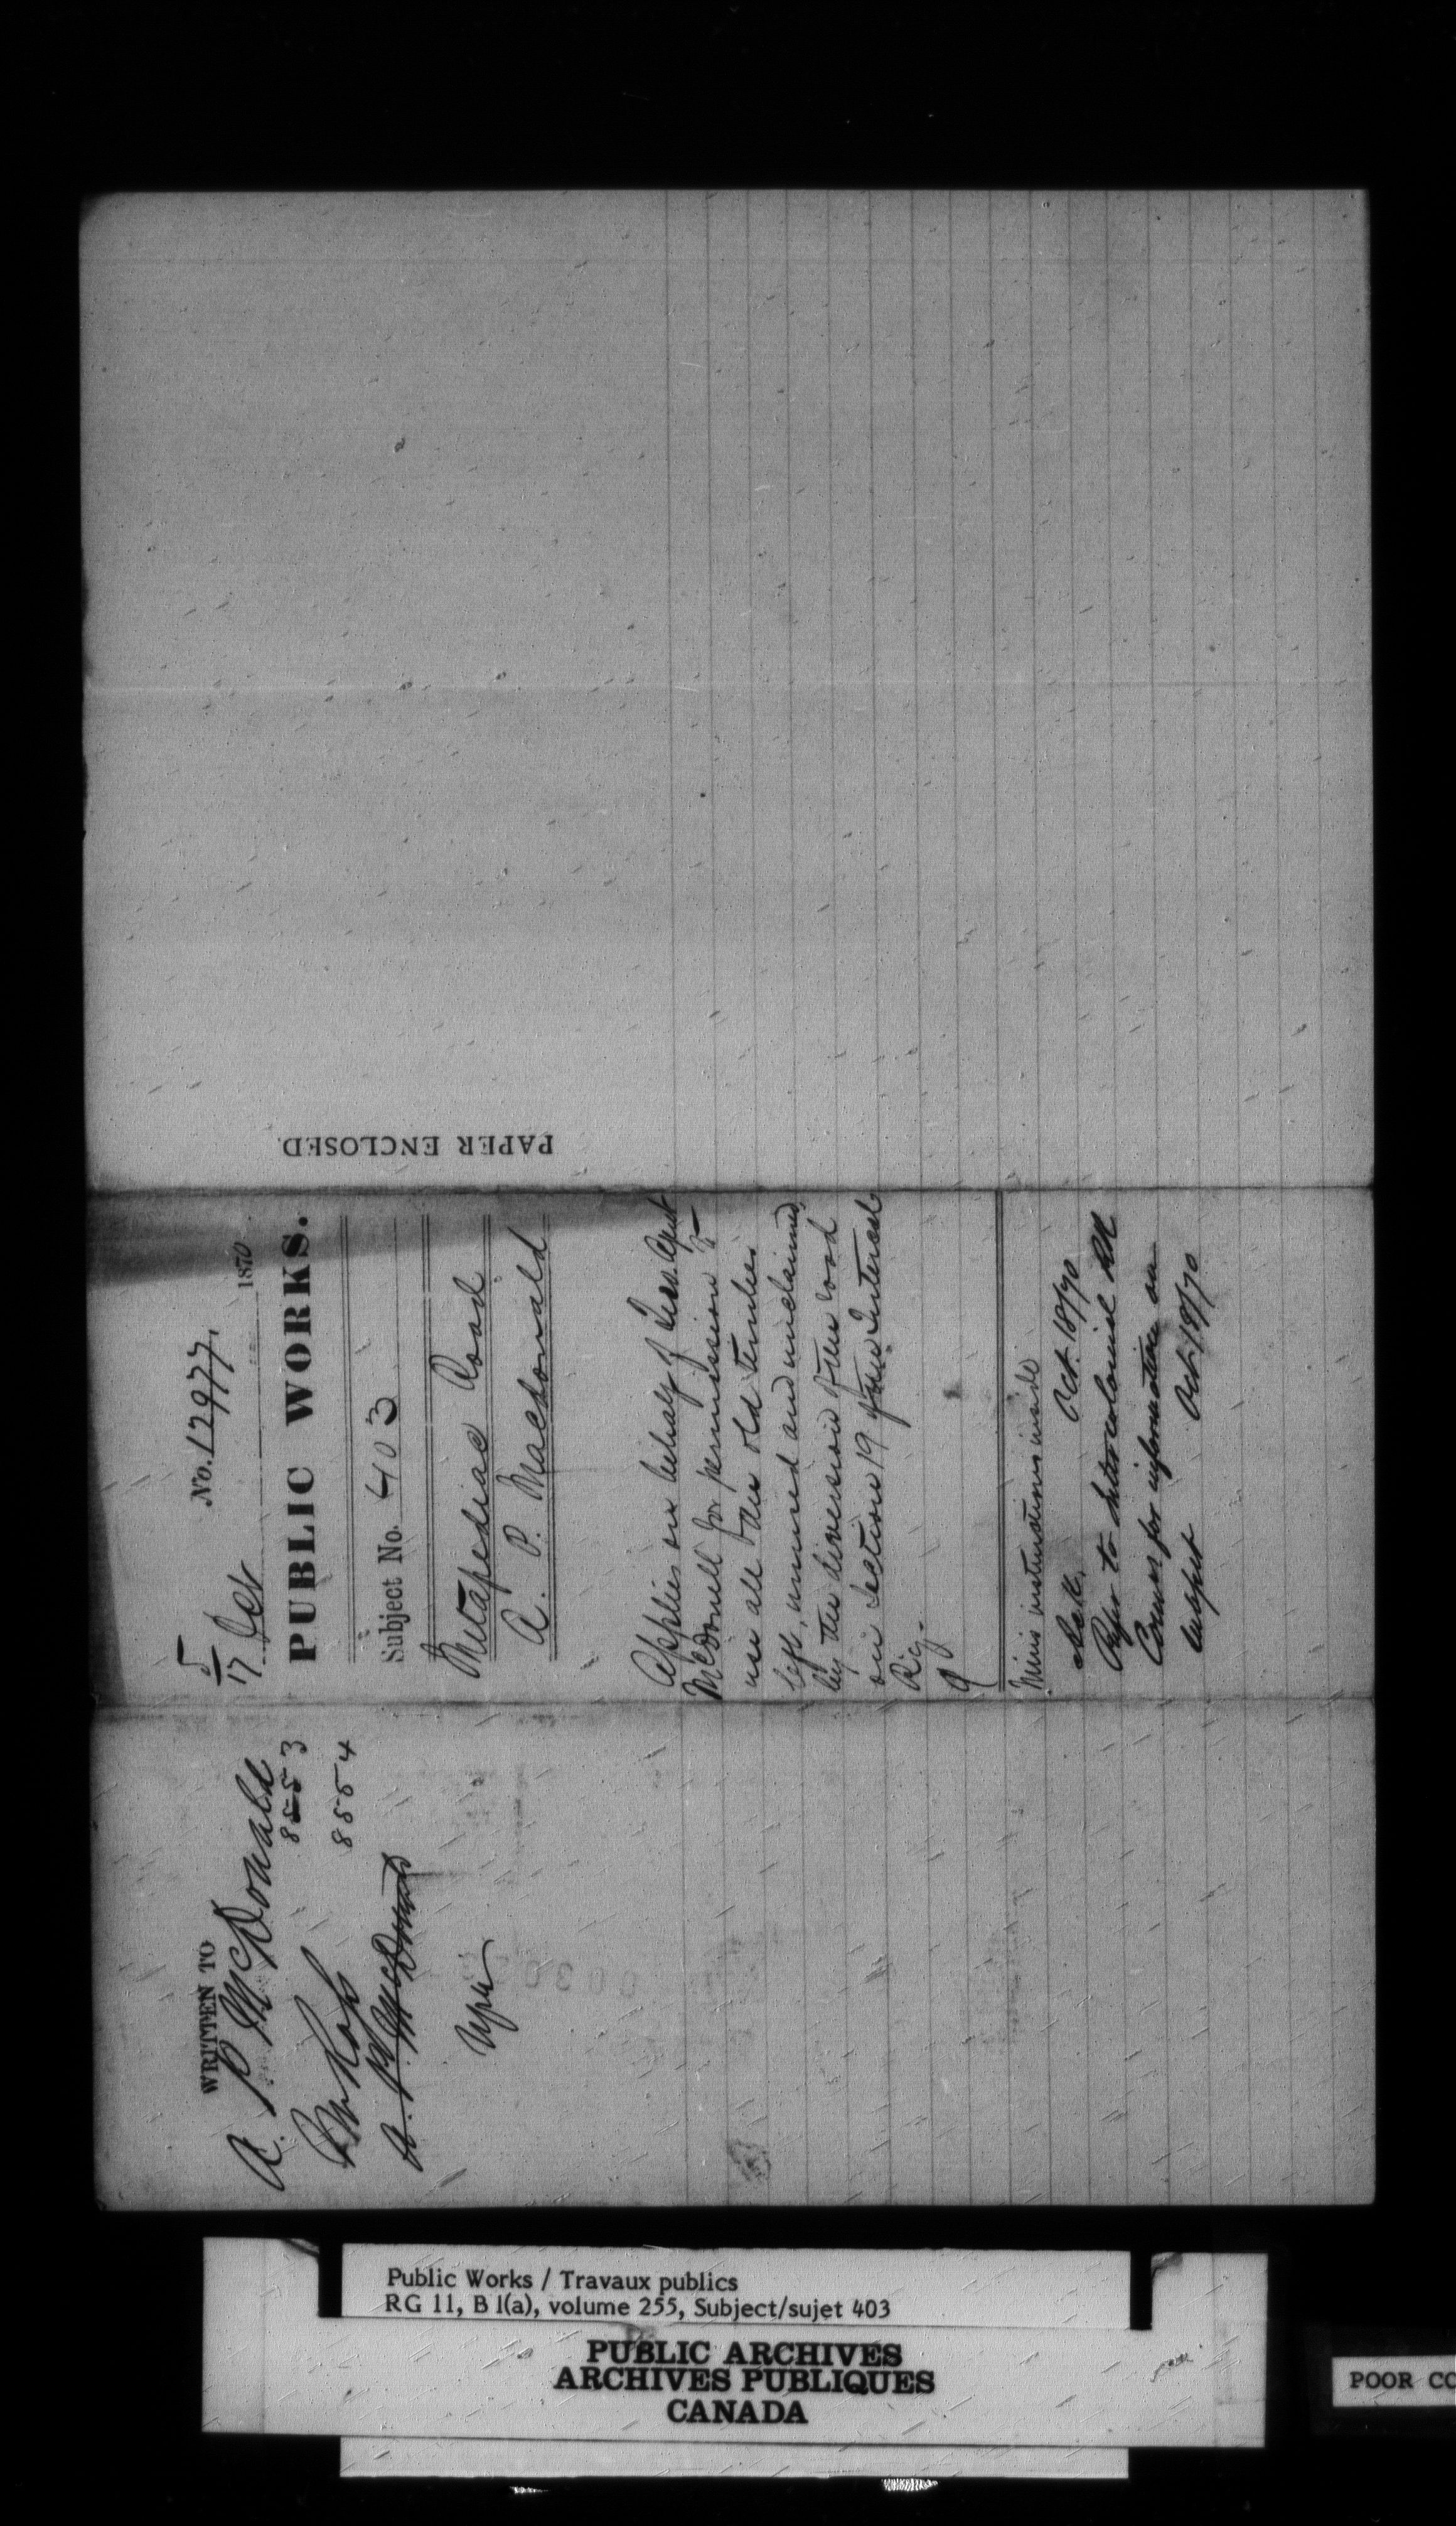 WRITTEN TO
A. P. McDonald
8553
8554
A. P. McDonald
5
17 Oct
No. 12977.
1870
PUBLIC WORKS.
Subject No. 403
Metapediac Road
A. P. Macdonald
Applies on behalf of
McDonell for permission to
use all the old timber
left, unused and unclaimed
by the diversion of the road
on Section 19 of the Intercol
Ry.
Mins instructions inside
Ack. Oct. 18/70
Refer to Intercolonial RR
Comrs for information on
subject Oct. 18/70
PAPER ENCLOSED.
Public Works / Travaux publics
RG 11, B 1(a), volume 255, Subject/sujet 403
PUBLIC ARCHIVES
ARCHIVES PUBLIQUES
CANADA
POOR CO